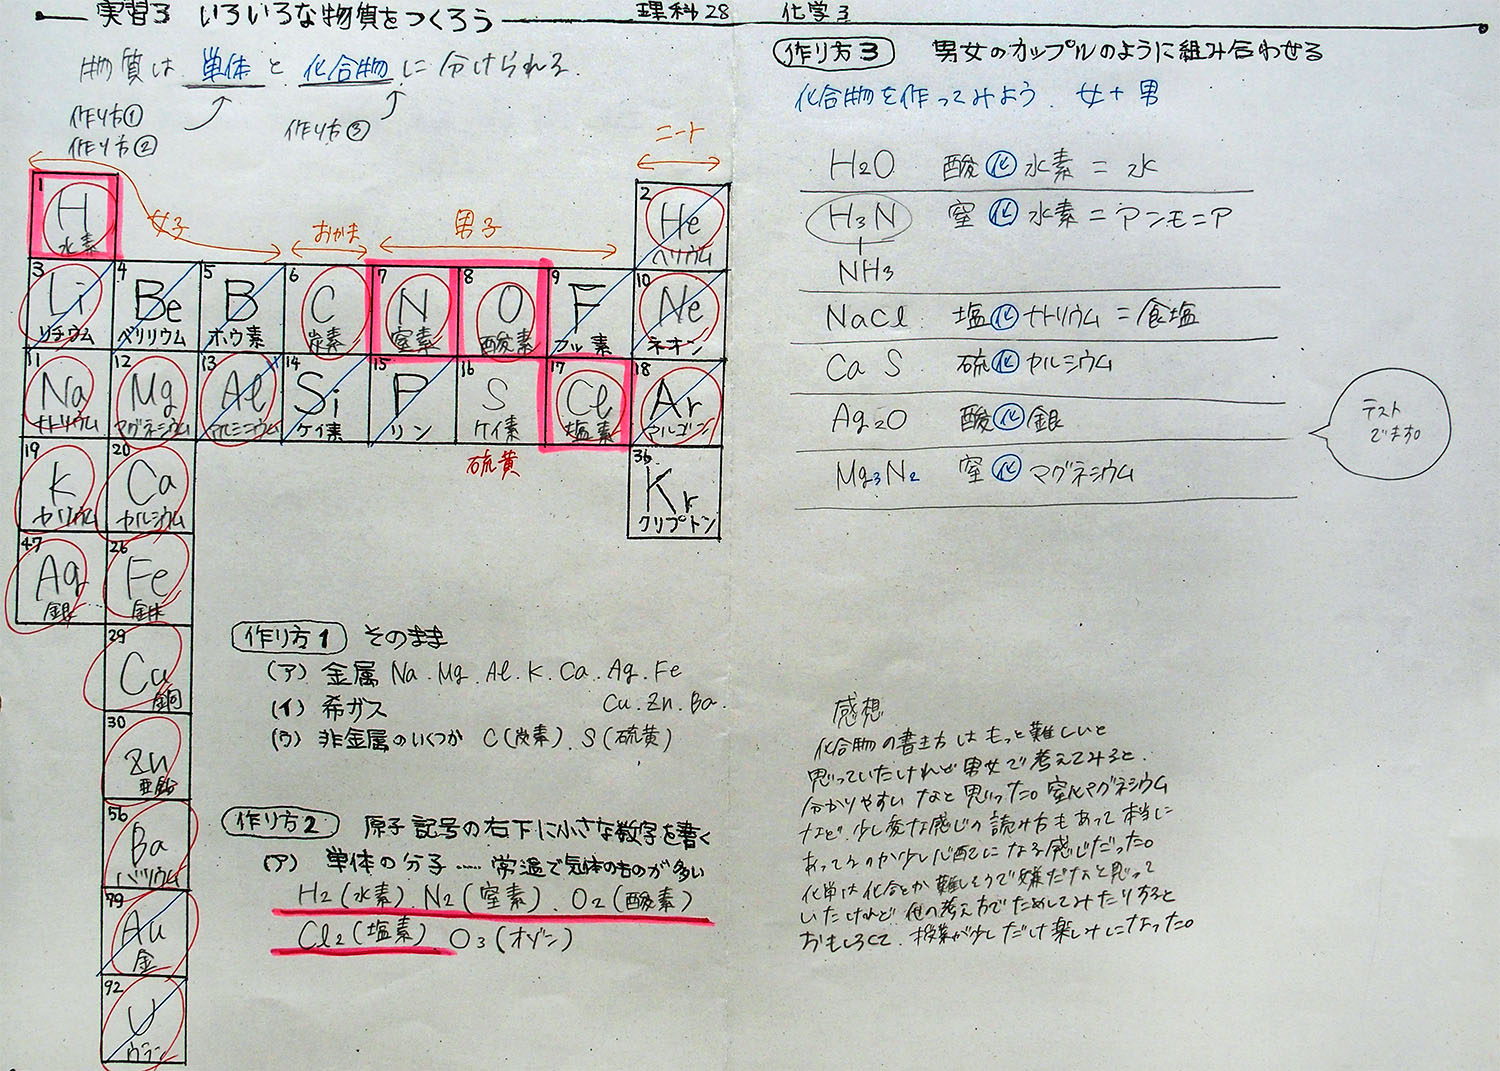 実習3 いろいろな物質をつくろう
理科28 化学3
物質は 単体 と 化合物 に 分けられる
作り方①
作り方②
作り方③
ニート
女子
おかま
男子
1 H 水素
2 He ヘリウム
3 Li リチウム
4 Be ベリリウム
5 B ホウ素
6 C 炭素
7 N 窒素
8 O 酸素
9 F フッ素
10 Ne ネオン
11 Na ナトリウム
12 Mg マグネシウム
13 Al アルミニウム
14 Si ケイ素
15 P リン
16 S ケイ素
硫黄
17 Cl 塩素
18 Ar アルゴン
19 K カリウム
20 Ca カルシウム
36 Kr クリプトン
47 Ag 銀
26 Fe 鉄
29 Cu 銅
30 Zn 亜鉛
56 Ba バリウム
79 Au 金
92 U ウラン
作り方1 そのまま
(ア) 金属 Na. Mg. Al. K. Ca. Ag. Fe
Cu. Zn. Ba.
(イ) 希ガス
(ウ) 非金属のいくつか C(炭素). S(硫黄)
作り方2 原子記号の右下に小さな数字を書く
(ア) 単体の分子……常温で気体のものが多い
H2(水素). N2(窒素). O2(酸素)
Cl2(塩素). O3(オゾン)
作り方3 男女のカップルのように組み合わせる
化合物を作ってみよう. 女+男
H2O 酸化水素 = 水
H3N 窒化水素 = アンモニア
NH3
NaCl 塩化ナトリウム = 食塩
CaS 硫化カルシウム
Ag2O 酸化銀
Mg3N2 窒化マグネシウム
テスト
でます。
感想
化合物の書き方はもっと難しいと
思っていたけれど男女で考えてみると、
分かりやすいなと思った。窒化マグネシウム
など、少し変な感じの読み方もあって本当に
あってるのか少し心配になる感じだった。
化学は化合とか難しそうで嫌だなと思って
いたけれど他の考え方でためしてみたりすると
おもしろくて、授業が少しだけ楽しみになった。